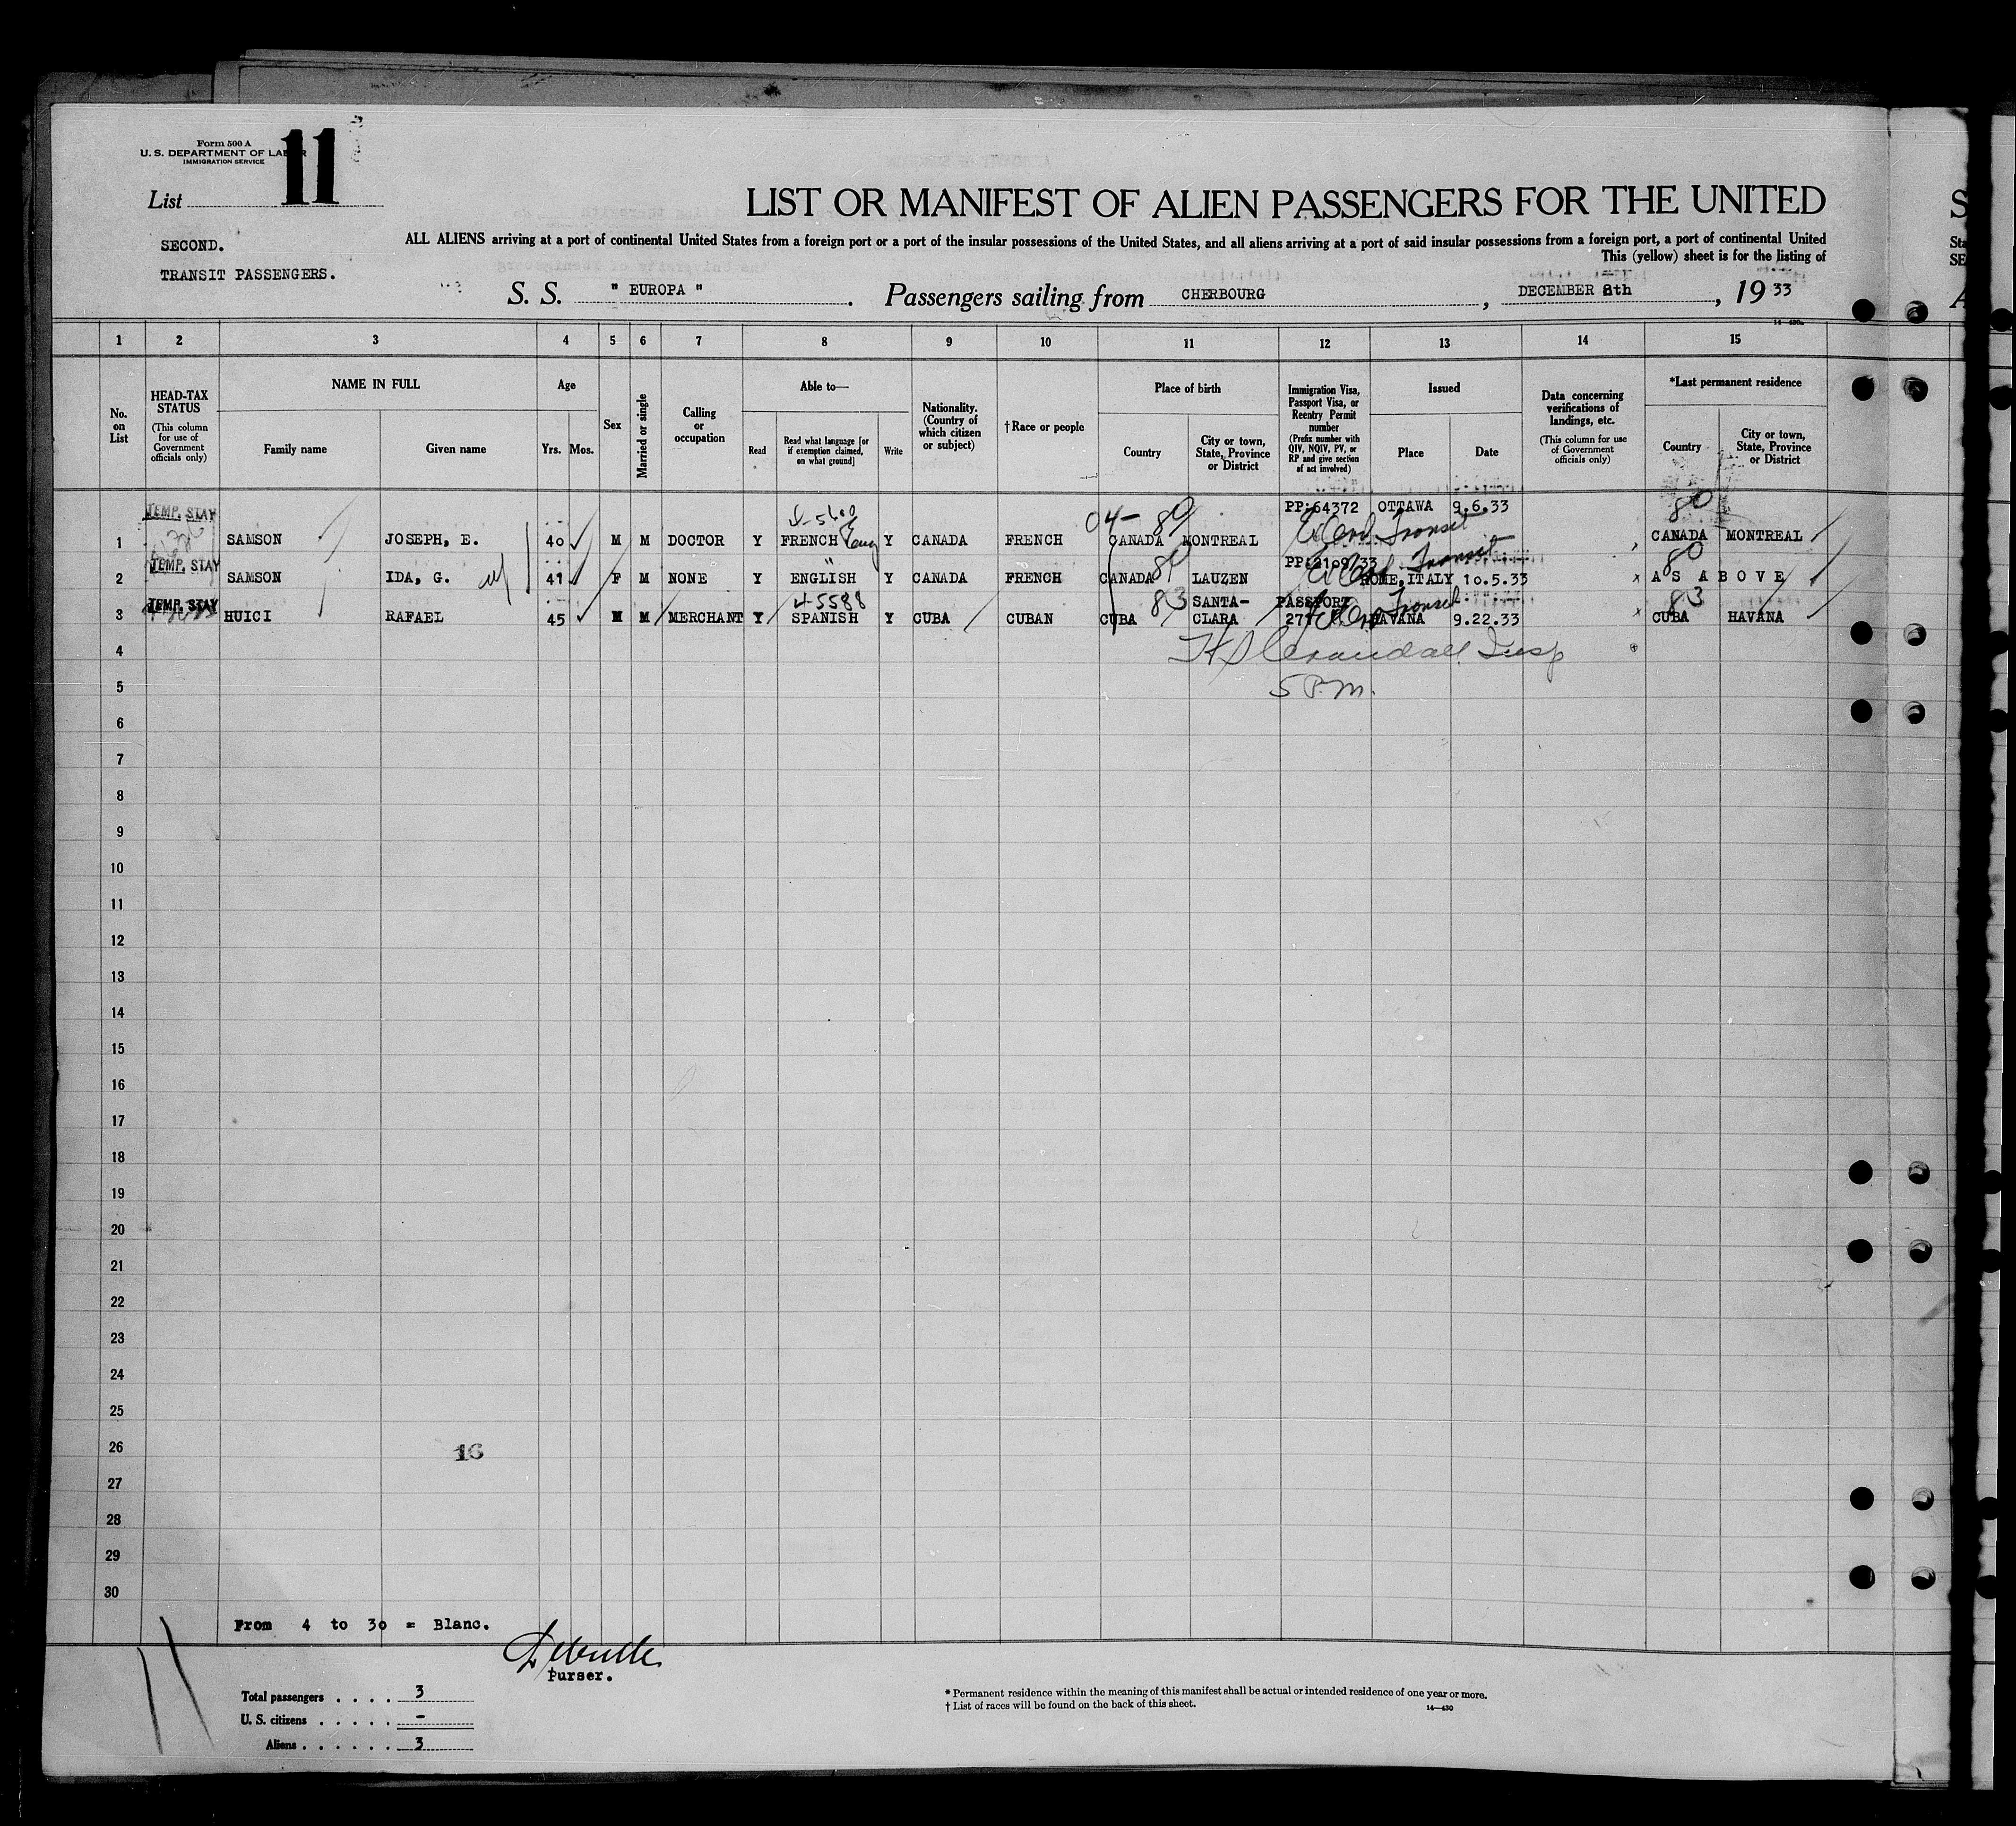 Form 500 A
U. S. DEPARTMENT OF LABOR
IMMIGRATION SERVICE
11
List
LIST OR MANIFEST OF ALIEN PASSENGERS FOR THE UNITED
SECOND.
TRANSIT PASSENGERS.
ALL ALIENS arriving at a port of continental United States from a foreign port or a port of the insular possessions of the United States, and all aliens arriving at a port of said insular possessions from a foreign port, a port of continental United
This (yellow) sheet is for the listing of
S. S. " EUROPA " . Passengers sailing from CHERBOURG , DECEMBER 8th , 19 33
1 2 3 4 5 6 7 8 9 10 11 12 13 14 15
No. on List
HEAD-TAX STATUS
(This column for use of Government officials only)
NAME IN FULL
Family name
Given name
Age
Yrs. Mos.
Sex
Married or single
Calling or occupation
Able to—
Read
Read what language [or if exemption claimed, on what ground]
Write
Nationality. (Country of which citizen or subject)
†Race or people
Place of birth
Country
City or town, State, Province or District
Immigration Visa, Passport Visa, or Reentry Permit number
(Prefix number with QIV, NQIV, PV, or RP and give section of act involved)
Issued
Place
Date
Data concerning verifications of landings, etc.
(This column for use of Government officials only)
*Last permanent residence
Country
City or town, State, Province or District
TEMP. STAY 04- 80 PP:64372 OTTAWA 9.6.33 80
1 SAMSON JOSEPH, E. 40 M M DOCTOR Y FRENCH Eng Y CANADA FRENCH CANADA MONTREAL Transit CANADA MONTREAL
TEMP. STAY 80 Transit 80
2 SAMSON IDA, G. 41 F M NONE Y ENGLISH Y CANADA FRENCH CANADA LAUZEN ROME, ITALY 10.5.33 A S A B O V E
TEMP. STAY 4-5588 83 SANTA- PASSPORT Transit 83
3 HUICI RAFAEL 45 M M MERCHANT Y SPANISH Y CUBA CUBAN CUBA CLARA HAVANA 9.22.33 CUBA HAVANA
4 Insp
5 5 P.m.
6
7
8
9
10
11
12
13
14
15
16
17
18
19
20
21
22
23
24
25
26
16
27
28
29
30
From 4 to 30 = Blanc.
Purser.
Total passengers . . . . 3
U. S. citizens . . . . . -
Aliens . . . . . . 3
* Permanent residence within the meaning of this manifest shall be actual or intended residence of one year or more.
† List of races will be found on the back of this sheet.
14—430